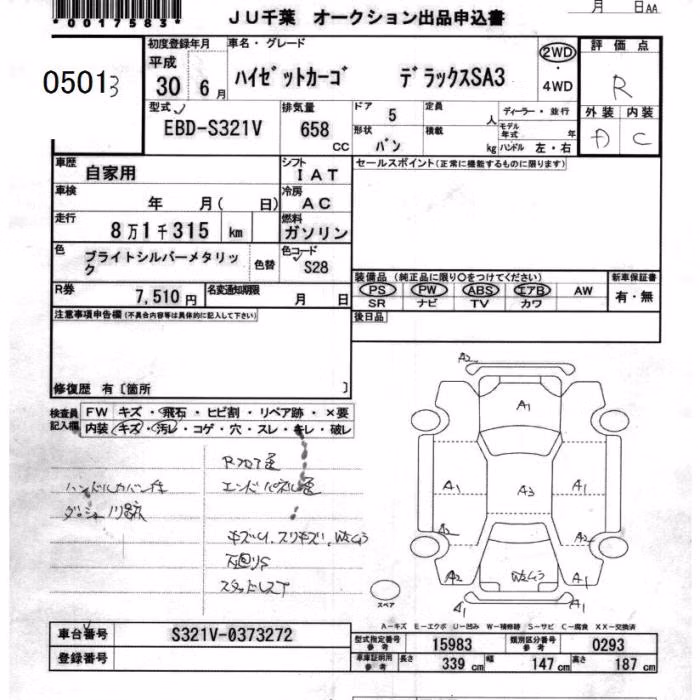 *0017583*
JU千葉 オークション出品申込書
月 日AA
05013
初度登録年月 平成 30 6月
車名・グレード
ハイゼットカーゴ デラックスSA3
2WD・4WD
評価点
R
外装 内装
C
型式
EBD-S321V
排気量
658 CC
ドア 5
定員 人
形状 バン
積載 kg
ディーラー・並行
モデル年式 年
ハンドル 左・右
車歴
自家用
シフト
IAT
セールスポイント(正常に機能するものに限ります)
車検
年 月( 日)
冷房
AC
走行
8万1千315 km
燃料
ガソリン
色
ブライトシルバーメタリッ
ク
色替
色コード
S28
装備品 (純正品に限り○をつけてください)
新車保証書
PS PW ABS エアB AW
有・無
SR ナビ TV カワ
R券
7,510円
名変通知期限
月 日
後日品
注意事項申告欄(不具合内容等は具体的に記入して下さい)
修復歴 有〔箇所 〕
検査員記入欄
FW キズ・飛石・ヒビ割・リペア跡・×要
内装 キズ・汚レ・コゲ・穴・スレ・キレ・破レ
ハンドルカバー付
エンドパネル
キズU,スリキズ,Wムラ
下回りS
スタッドレスT
A2
A1
A1 A3 A1
A2 A2
A2 Wムラ A1
A1 A1
スペア
A－キズ E－エクボ U－凹み W－補修跡 S－サビ C－腐食 XX－交換済
車台番号
S321V-0373272
登録番号
型式指定番号 参考 15983
類別区分番号 参考 0293
車庫証明用 参考 長さ 339 cm 幅 147 cm 高さ 187 cm